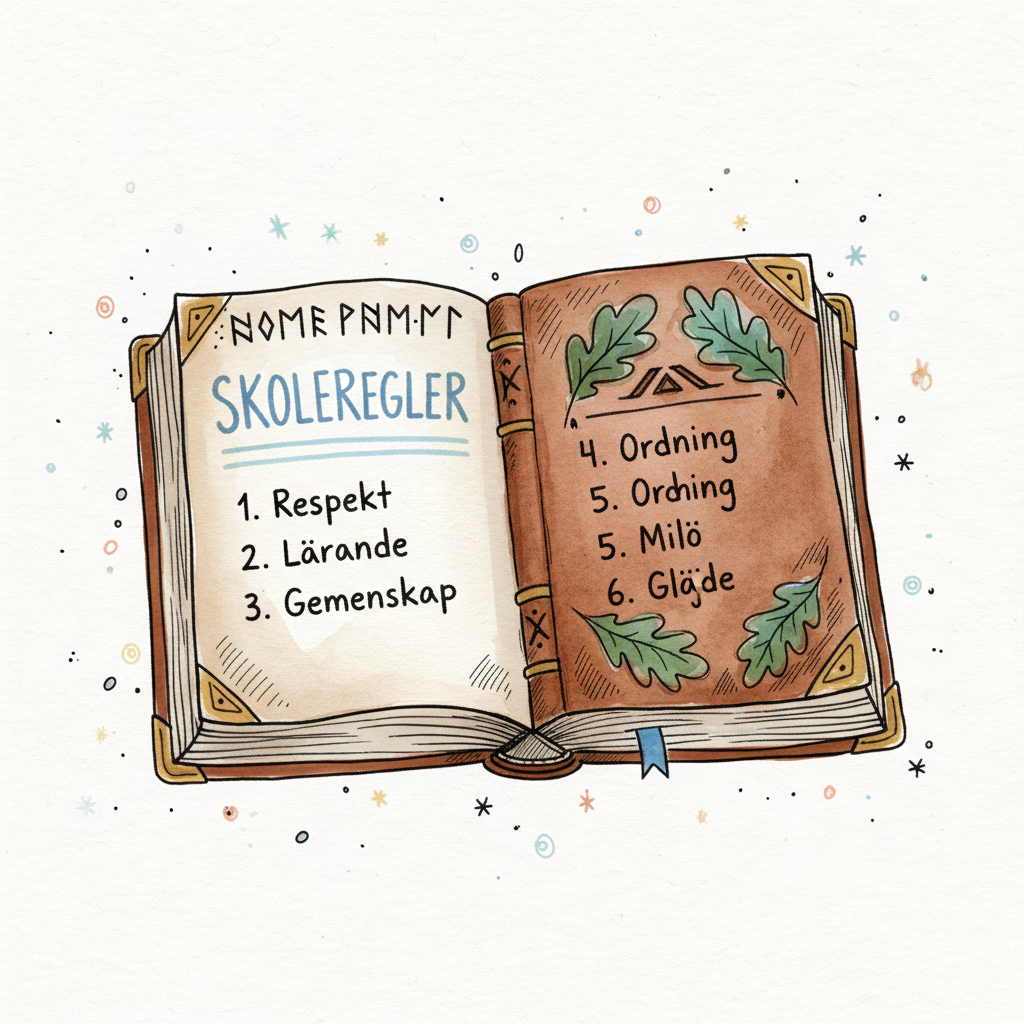 SKOLEREGLER
1. Respekt
2. Lärande
3. Gemenskap
4. Ordning
5. Ordning
5. Milö
6. Gläde